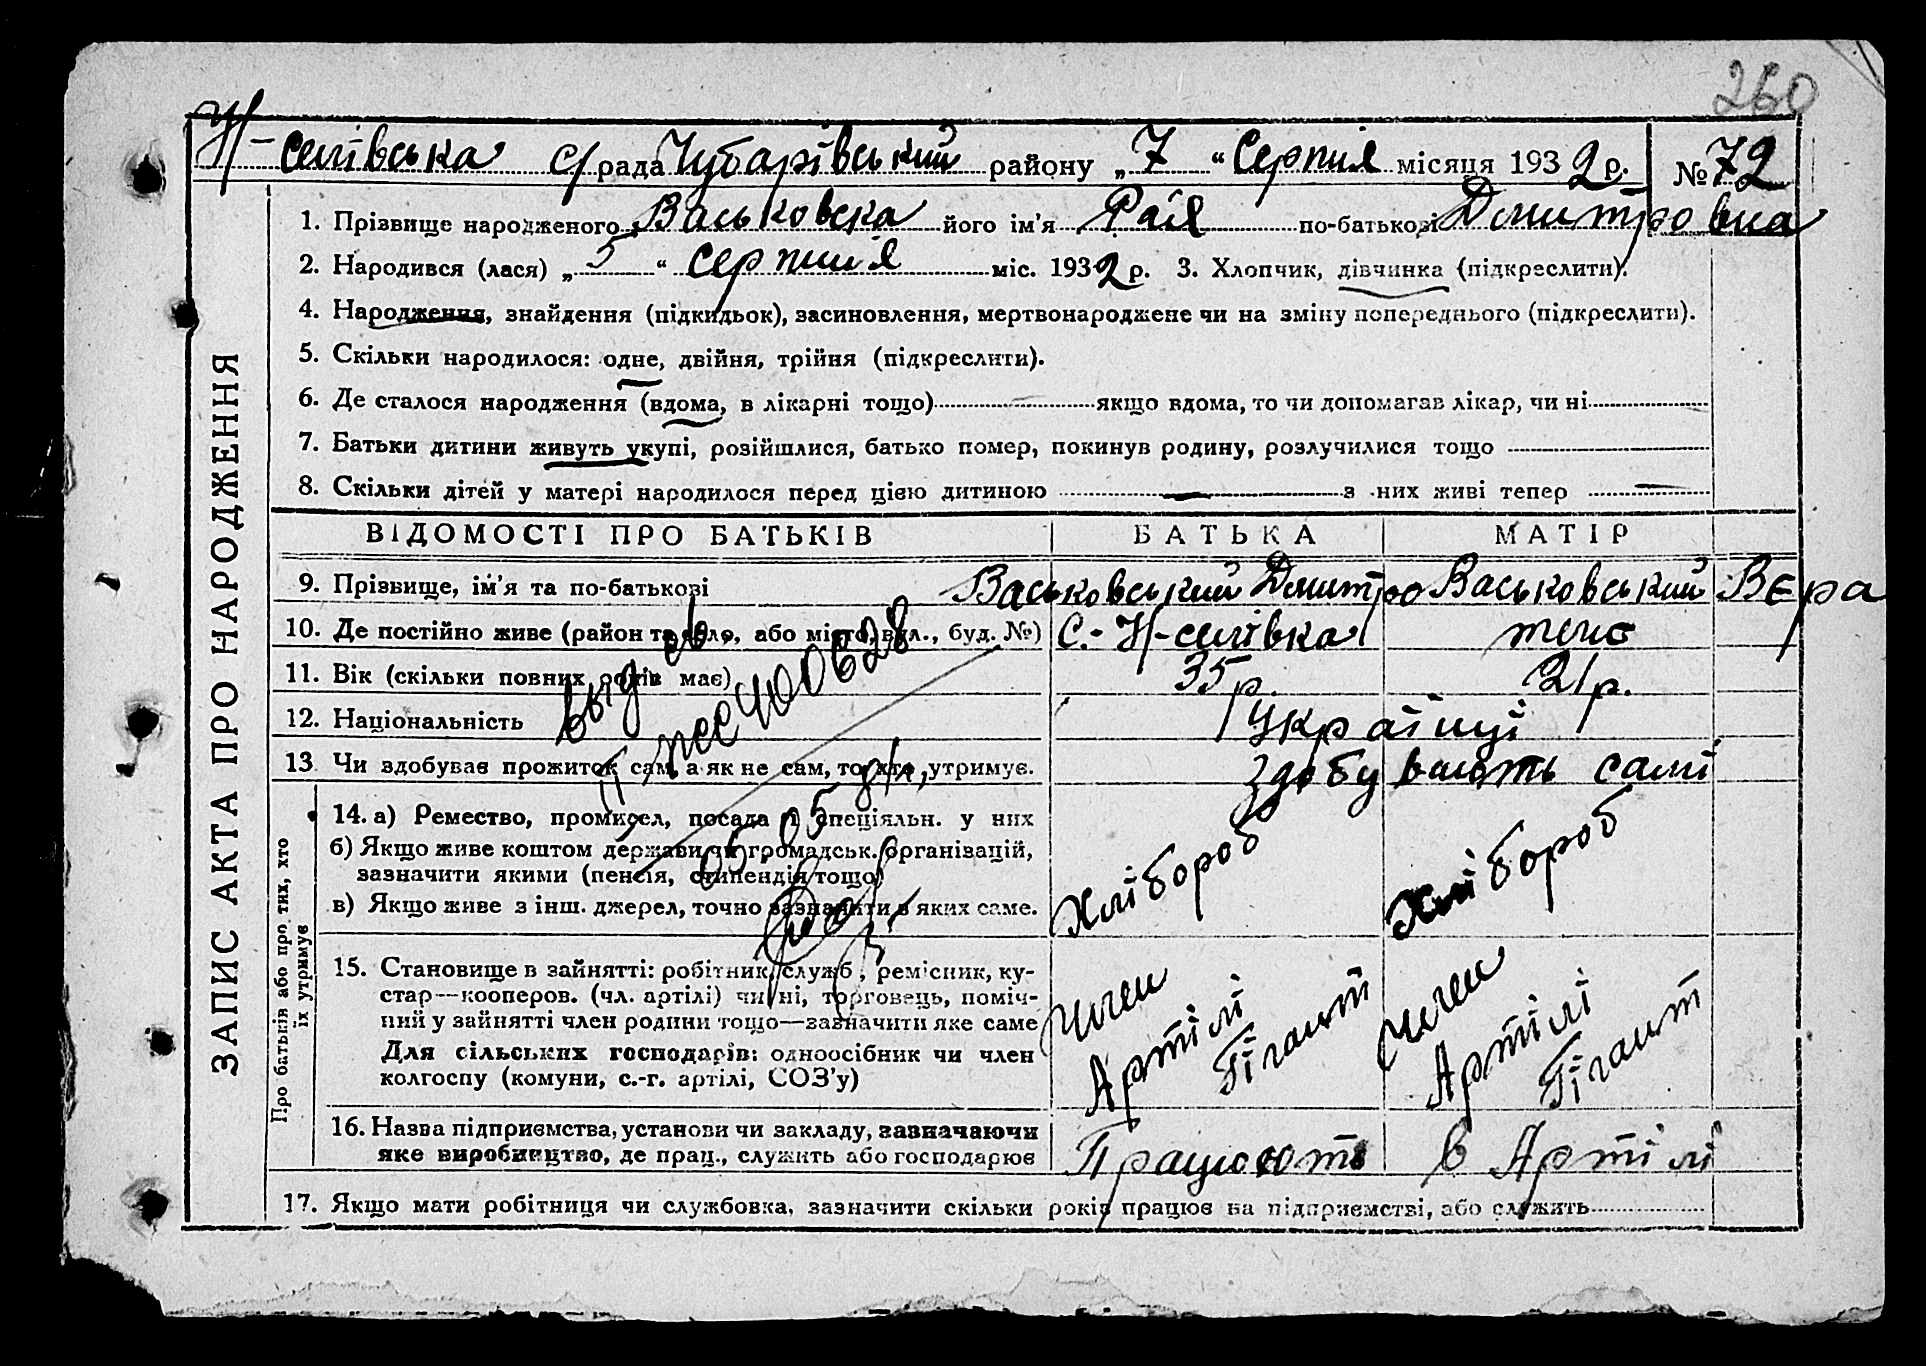 260
Н-селівська с/рада Чубарівський району „7“ Серпня місяця 1932 р. № 72
ЗАПИС АКТА ПРО НАРОДЖЕННЯ
1. Прізвище народженого Васьковска його ім'я Рая по-батькові Дмитровна
2. Народився (лася) „5“ серпня міс. 1932 р. 3. Хлопчик, дівчинка (підкреслити).
4. Народження, знайдення (підкидьок), засиновлення, мертвонароджене чи на зміну попереднього (підкреслити).
5. Скільки народилося: одне, двійня, трійня (підкреслити).
6. Де сталося народження (вдома, в лікарні тощо) якщо вдома, то чи допомагав лікар, чи ні
7. Батьки дитини живуть укупі, розійшлися, батько помер, покинув родину, розлучилися тощо
8. Скільки дітей у матері народилося перед цією дитиною — з них живі тепер —
ВІДОМОСТІ ПРО БАТЬКІВ БАТЬКА МАТІР
9. Прізвище, ім'я та по-батькові Васьковський Дмитро Васьковський Вєра
10. Де постійно живе (район та село, або місто, вул., буд. №) с.- Н-селівка тено
11. Вік (скільки повних років має) 35 р. 21 р.
12. Національність Українці
13 Чи здобував прожиток сам, а як не сам, то хто утримує. Здобувають самі
Про батьків або про тих, хто їх утримує
14. а) Ремество, промисел, посада і спеціяльн. у них
б) Якщо живе коштом держави чи громадськ. організацій,
зазначити якими (пенсія, стипендія тощо)
в) Якщо живе з інш. джерел, точно зазначити з яких саме.
Хлібороб Хлібороб
15. Становище в зайнятті: робітник, служб., ремісник, ку-
стар—кооперов. (чл. артілі) чи ні, торговець, поміч-
ний у зайнятті член родини тощо—зазначити яке саме
Для сільських господарів: одноосібник чи член
колгоспу (комуни, с.-г. артілі, СОЗ'у)
Член Артілі Гігант Член Артілі Гігант
16. Назва підприємства, установи чи закладу, зазначаючи
яке виробництво, де прац., служить або господарює Працюють в Артілі
17. Якщо мати робітниця чи службовка, зазначити скільки років працює на підприємстві, або служить
выд св
400628
05.05